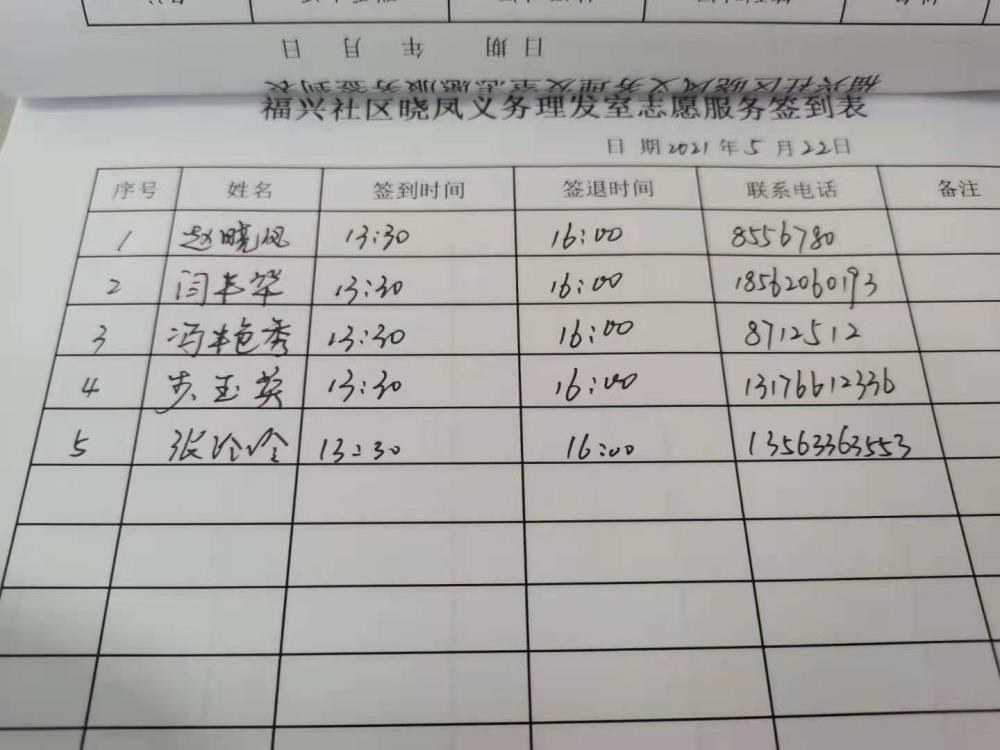 日 期 年 月 日
福兴社区晓凤义务理发室志愿服务签到表
福兴社区晓凤义务理发室志愿服务签到表
日 期 2021 年 5 月 22 日
序号 姓名 签到时间 签退时间 联系电话 备注
1 赵晓凤 13:30 16:00 8556780
2 闫丰华 13:30 16:00 18562060193
3 冯艳秀 13:30 16:00 8712512
4 步玉英 13:30 16:00 13176612336
5 张冷冷 13:30 16:00 13563363553